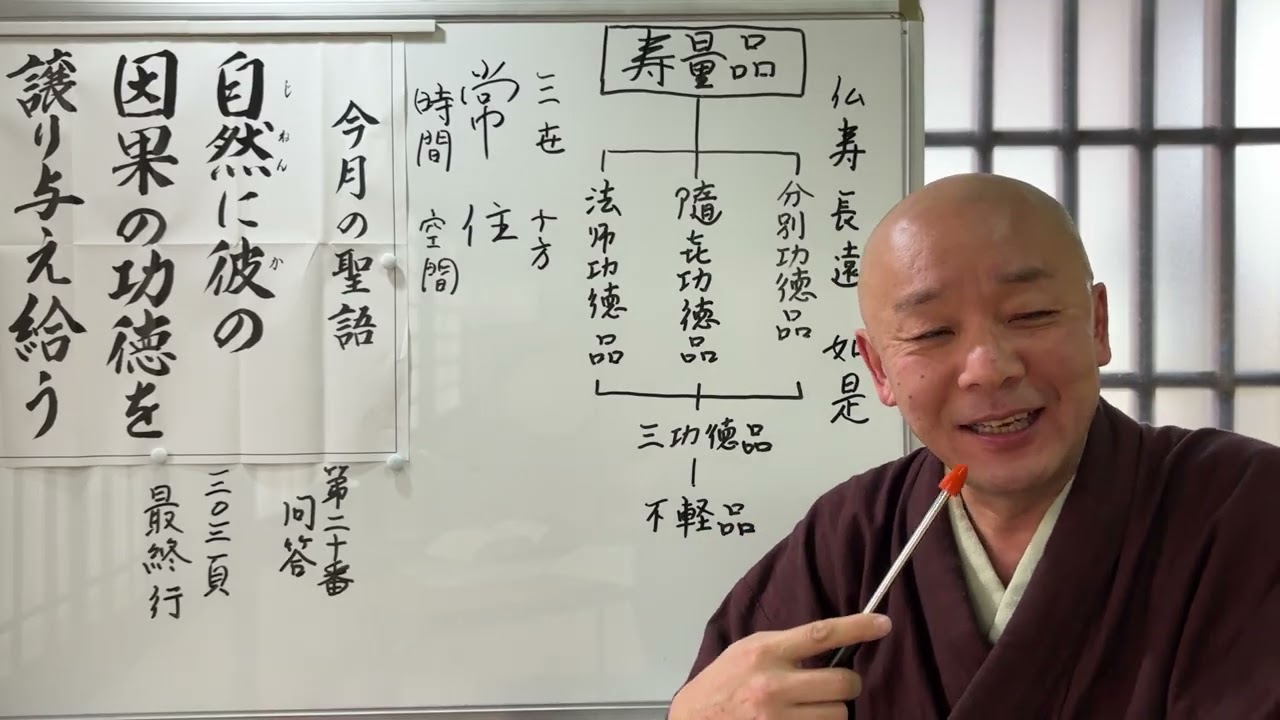 仏寿長遠 如是
寿量品
分別功徳品
随喜功徳品
法師功徳品
三功徳品
不軽品
三世 十方
常住
時間 空間
今月の聖語
自然に彼の
じねん
か
因果の功徳を
譲り与え給う
第二十番
問答
二〇三一頁
最終行